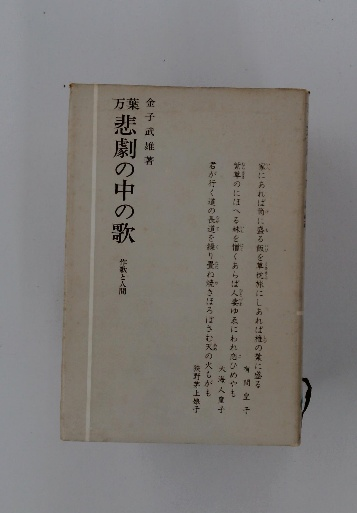 万葉
悲劇の中の歌
作歌と人間
金子武雄著
家にあれば笥に盛る飯を草枕旅にしあれば椎の葉に盛る
有間皇子
紫草のにほへる妹を憎くあらば人妻ゆゑにわれ恋ひめやも
大海人皇子
君が行く道の長道を繰り畳ね焼きほろぼさむ天の火もがも
狭野茅上娘子